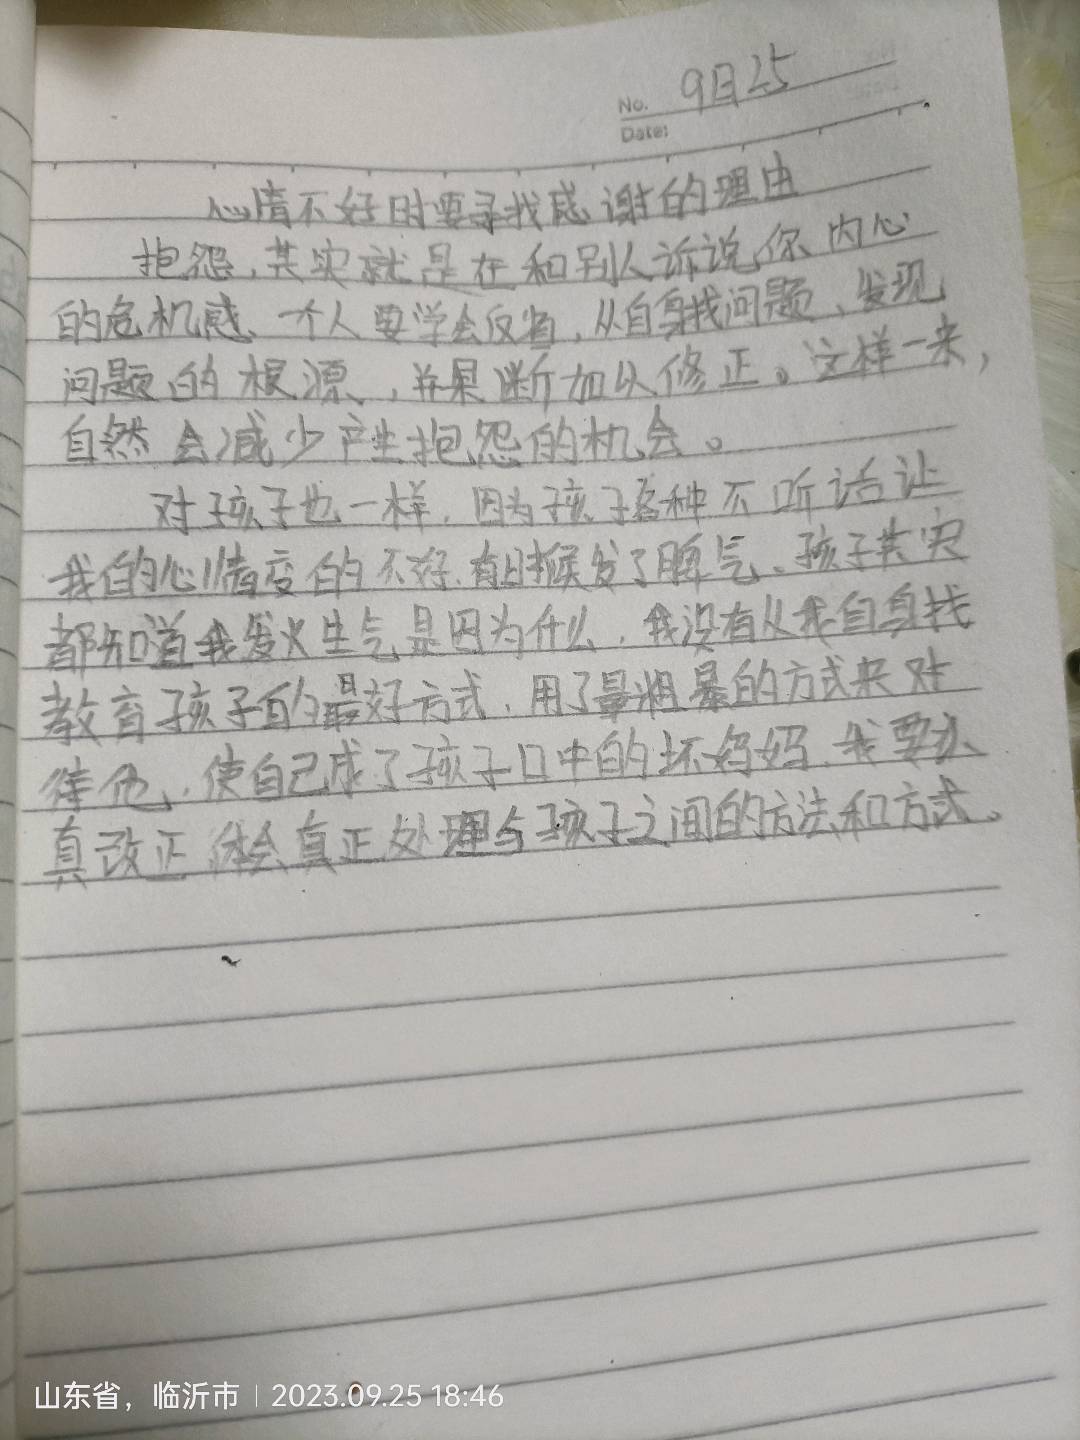 No. 9月25
Date:
心情不好时要寻找感谢的理由
抱怨,其实就是在和别人诉说你内心
的危机感、一个人要学会反省,从自身找问题、发现
问题的根源,并果断加以修正。这样一来,
自然会减少产生抱怨的机会。
对孩子也一样,因为孩子各种不听话让
我的心情变的不好,有时候发了脾气、孩子其实
都知道我发火生气是因为什么,我没有从我自身找
教育孩子的最好方式,用了最粗暴的方式来对
待他,使自己成了孩子口中的坏妈妈,我要认
真改正体会真正处理与孩子之间的方法和方式。
山东省,临沂市 | 2023.09.25 18:46